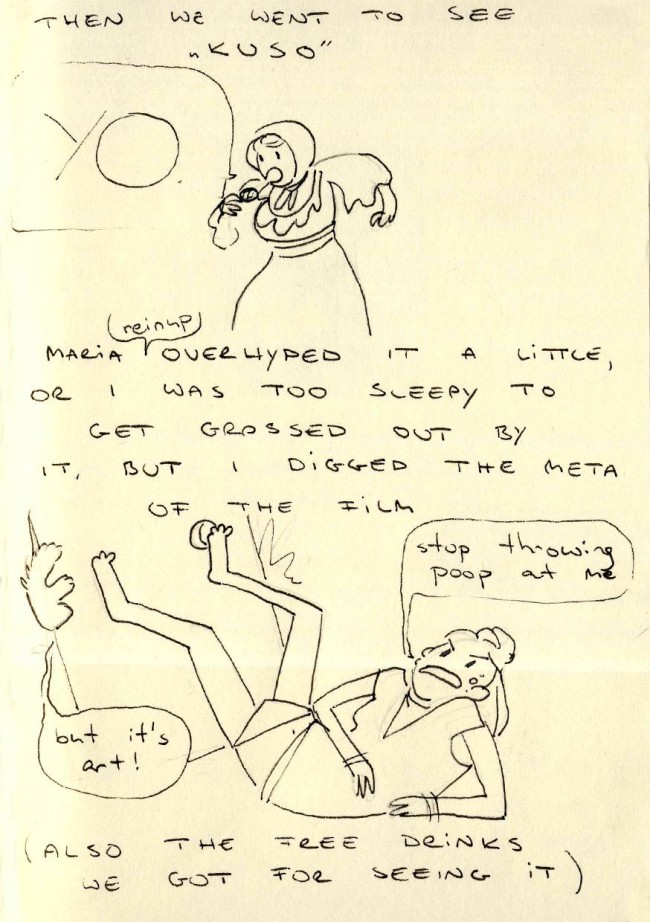 THEN WE WENT TO SEE
„KUSO”
YO
(reinup)
MARIA OVERHYPED IT A LITTLE,
OR I WAS TOO SLEEPY TO
GET GROSSED OUT BY
IT, BUT I DIGGED THE META
OF THE FILM
stop throwing
poop at me
but it's
art!
(ALSO THE FREE DRINKS
WE GOT FOR SEEING IT)